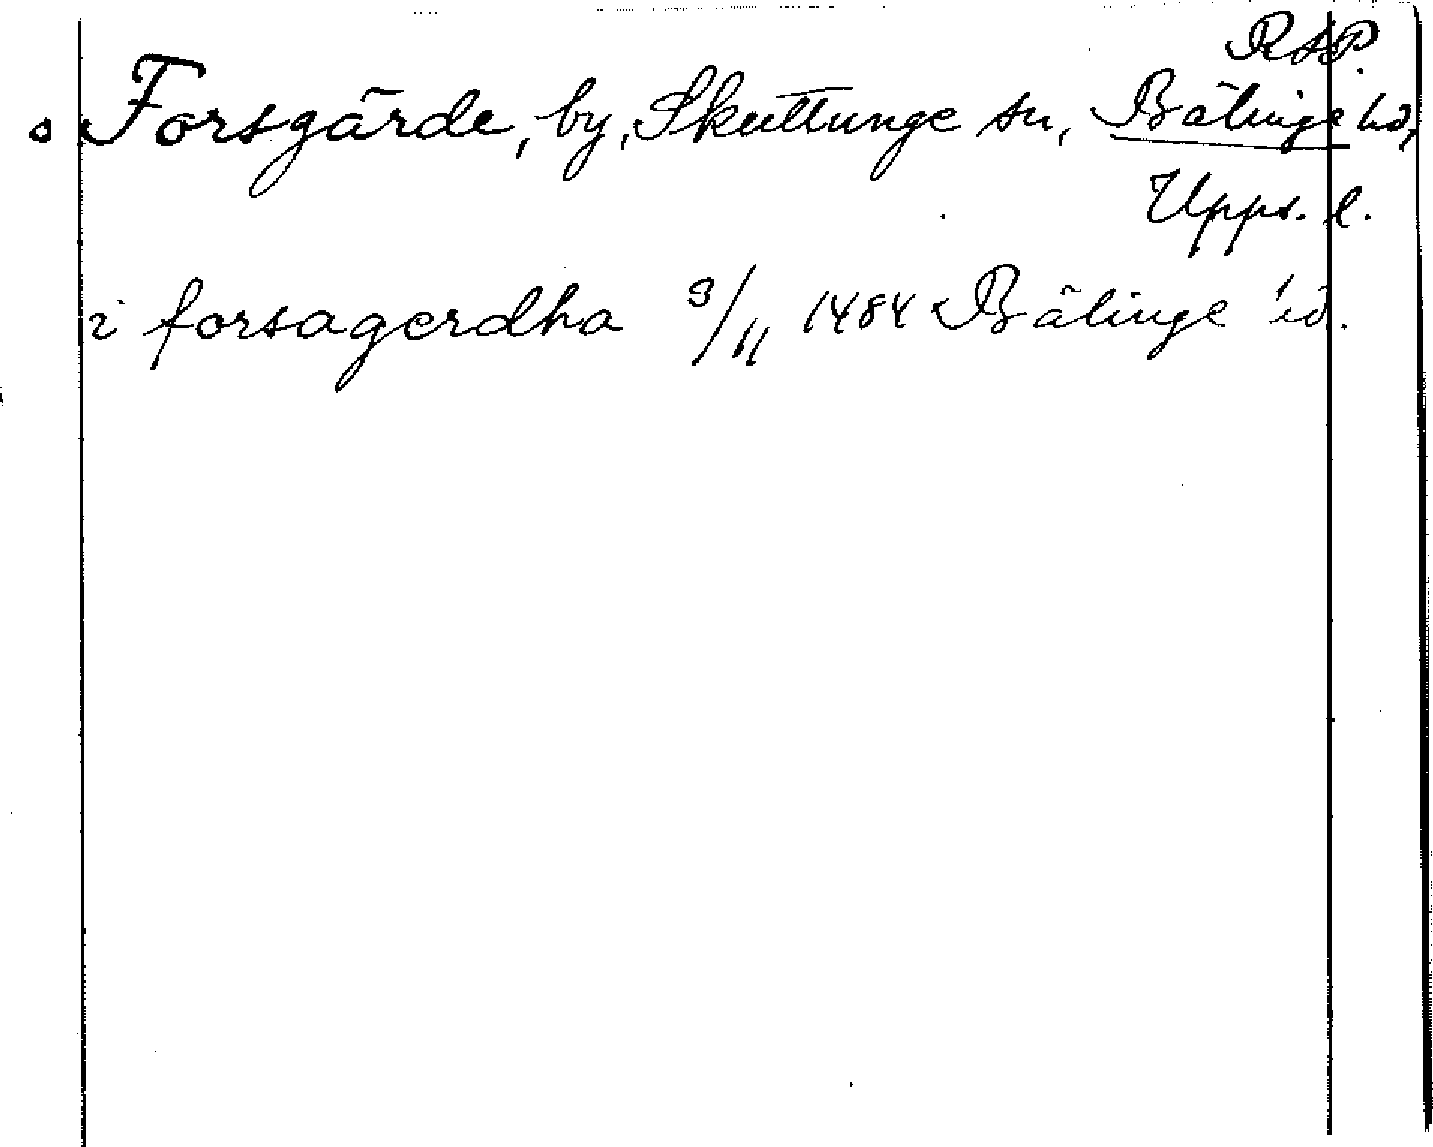 RAP.
o Forsgärde, by, Skuttunge sn, Bälinge hd,
Upps. l.
i forsagerdha 9/11 1484 Bälinge